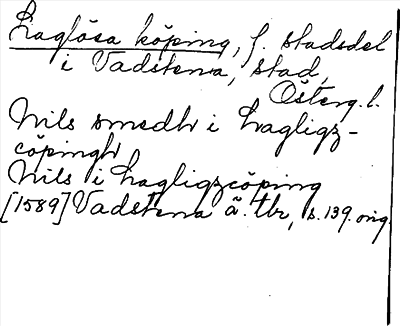 Laglösa köping, f. stadsdel
i Vadstena, stad,
Österg. l.
Nils smedh i Lagligz-
cöpingh
Nils i Lagligzcöping
[1589] Vadstena ä. tbr, s. 139. orig.